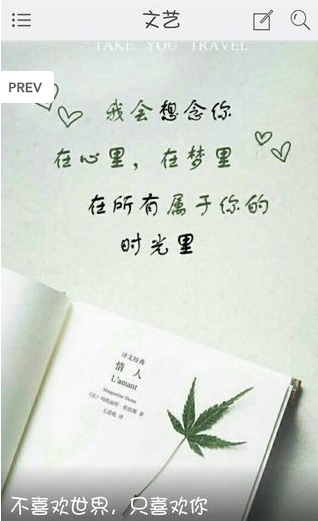 文艺
TAKE YOU TRAVEL
PREV
我会想念你
在心里，在梦里
在所有属于你的
时光里
译文经典
情人
L'amant
Marguerite Duras
〔法〕玛格丽特·杜拉斯 著
王道乾 译
不喜欢世界，只喜欢你